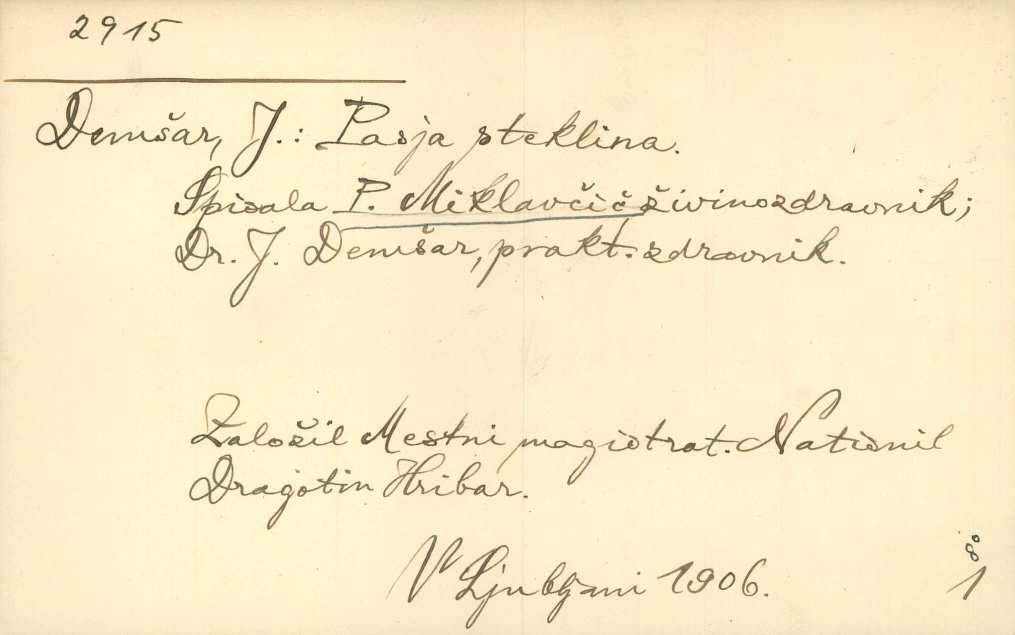 2915
Demšar, J.: Pasja steklina.
Spisala P. Miklavčič živinozdravnik;
Dr. J. Demšar, prakt. zdravnik.
Založil Mestni magistrat. Natisnil
Dragotin Hribar.
V Ljubljani 1906.
8°
1